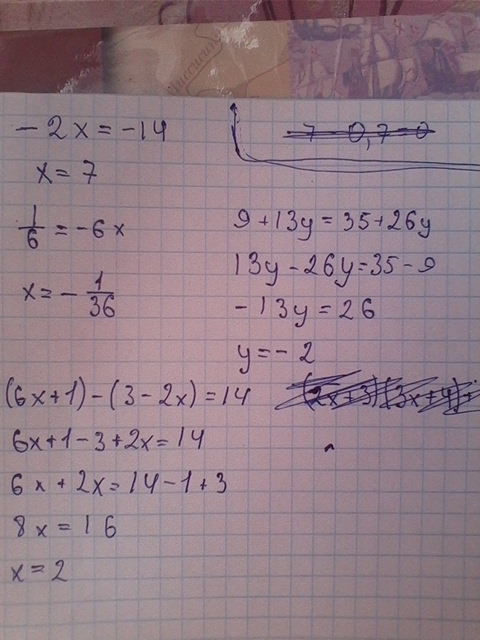 - 2x = -14
x = 7
1/6 = -6x
x = - 1/36
7 - 0,7 = 0
9 + 13y = 35 + 26y
13y - 26y = 35 - 9
- 13y = 26
y = - 2
(6x+1) - (3 - 2x) = 14
6x + 1 - 3 + 2x = 14
6x + 2x = 14 - 1 + 3
8x = 16
x = 2
(2x+3)(3x+4)